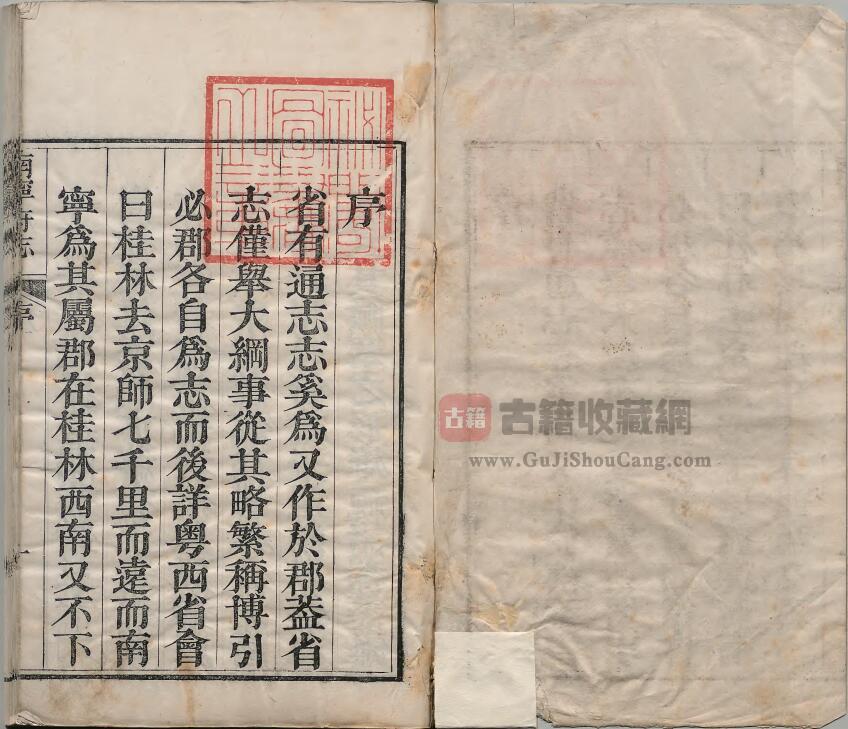 序
省有通志志奚爲又作於郡葢省
志僅舉大綱事從其略繁稱博引
必郡各自爲志而後詳粤西省會
曰桂林去京師七千里而遠而南
寧爲其屬郡在桂林西南又不下
南寧府志
序
一
古籍
古籍收藏網
www.GuJiShouCang.com